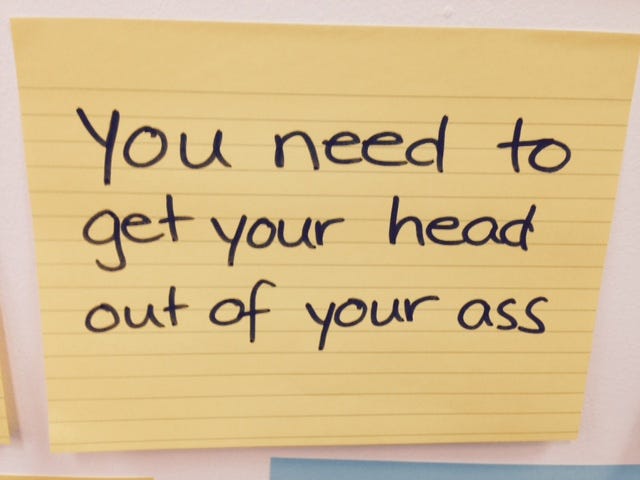 You need to
get your head
out of your ass